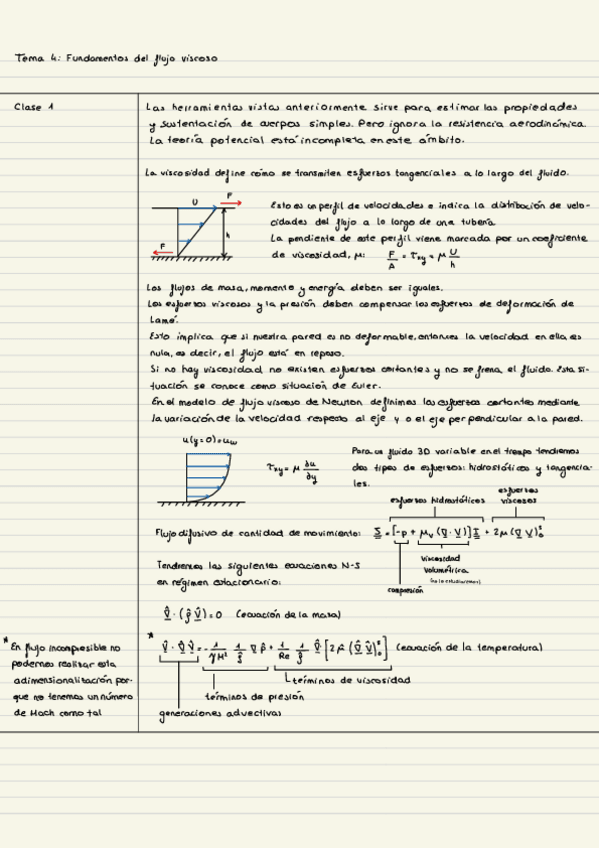 Tema 4: Fundamentos del flujo viscoso
Clase 1
Las herramientas vistas anteriormente sirve para estimar las propiedades
y sustentación de cuerpos simples. Pero ignora la resistencia aerodinámica.
La teoría potencial está incompleta en este ámbito.
La viscosidad define cómo se transmiten esfuerzos tangenciales a lo largo del fluido.
U F
h
F
Esto es un perfil de velocidades e indica la distribución de velo-
cidades del flujo a lo largo de una tubería.
La pendiente de este perfil viene marcada por un coeficiente
de viscosidad, μ: F/A = τxy = μ U/h
Los flujos de masa, momento y energía deben ser iguales.
Los esfuerzos viscosos y la presión deben compensar los esfuerzos de deformación de
Lamé.
Esto implica que si nuestra pared es no deformable, entonces la velocidad en ella es
nula, es decir, el flujo está en reposo.
Si no hay viscosidad no existen esfuerzos cortantes y no se frena el fluido. Esta si-
tuación se conoce como situación de Euler.
En el modelo de flujo viscoso de Newton definimos los esfuerzos cortantes mediante
la variación de la velocidad respecto al eje y o el eje perpendicular a la pared.
u(y=0)=uw
τxy = μ ∂u/∂y
Para un fluido 3D variable en el tiempo tendremos
dos tipos de esfuerzos: hidrostáticos y tangencia-
les.
esfuerzos hidrostáticos
esfuerzos
viscosos
Flujo difusivo de cantidad de movimiento: Σ = [-p + μv (∇ · V)] I + 2μ (∇ V)₀ˢ
compresión
viscosidad
volumétrica
(no la estudiaremos)
Tendremos las siguientes ecuaciones N-S
en régimen estacionario:
∇̂ · (ρ̂ V̂) = 0 (ecuación de la masa)
* V̂ · ∇̂ V̂ = - 1/γM² 1/ρ̂ ∇ p̂ + 1/Re 1/ρ̂ ∇̂ · [2μ̂ (∇̂ V̂)₀ˢ] (ecuación de la temperatura)
términos de viscosidad
términos de presión
generaciones advectivas
* En flujo incompresible no
podemos realizar esta
adimensionalización por-
que no tenemos un número
de Mach como tal